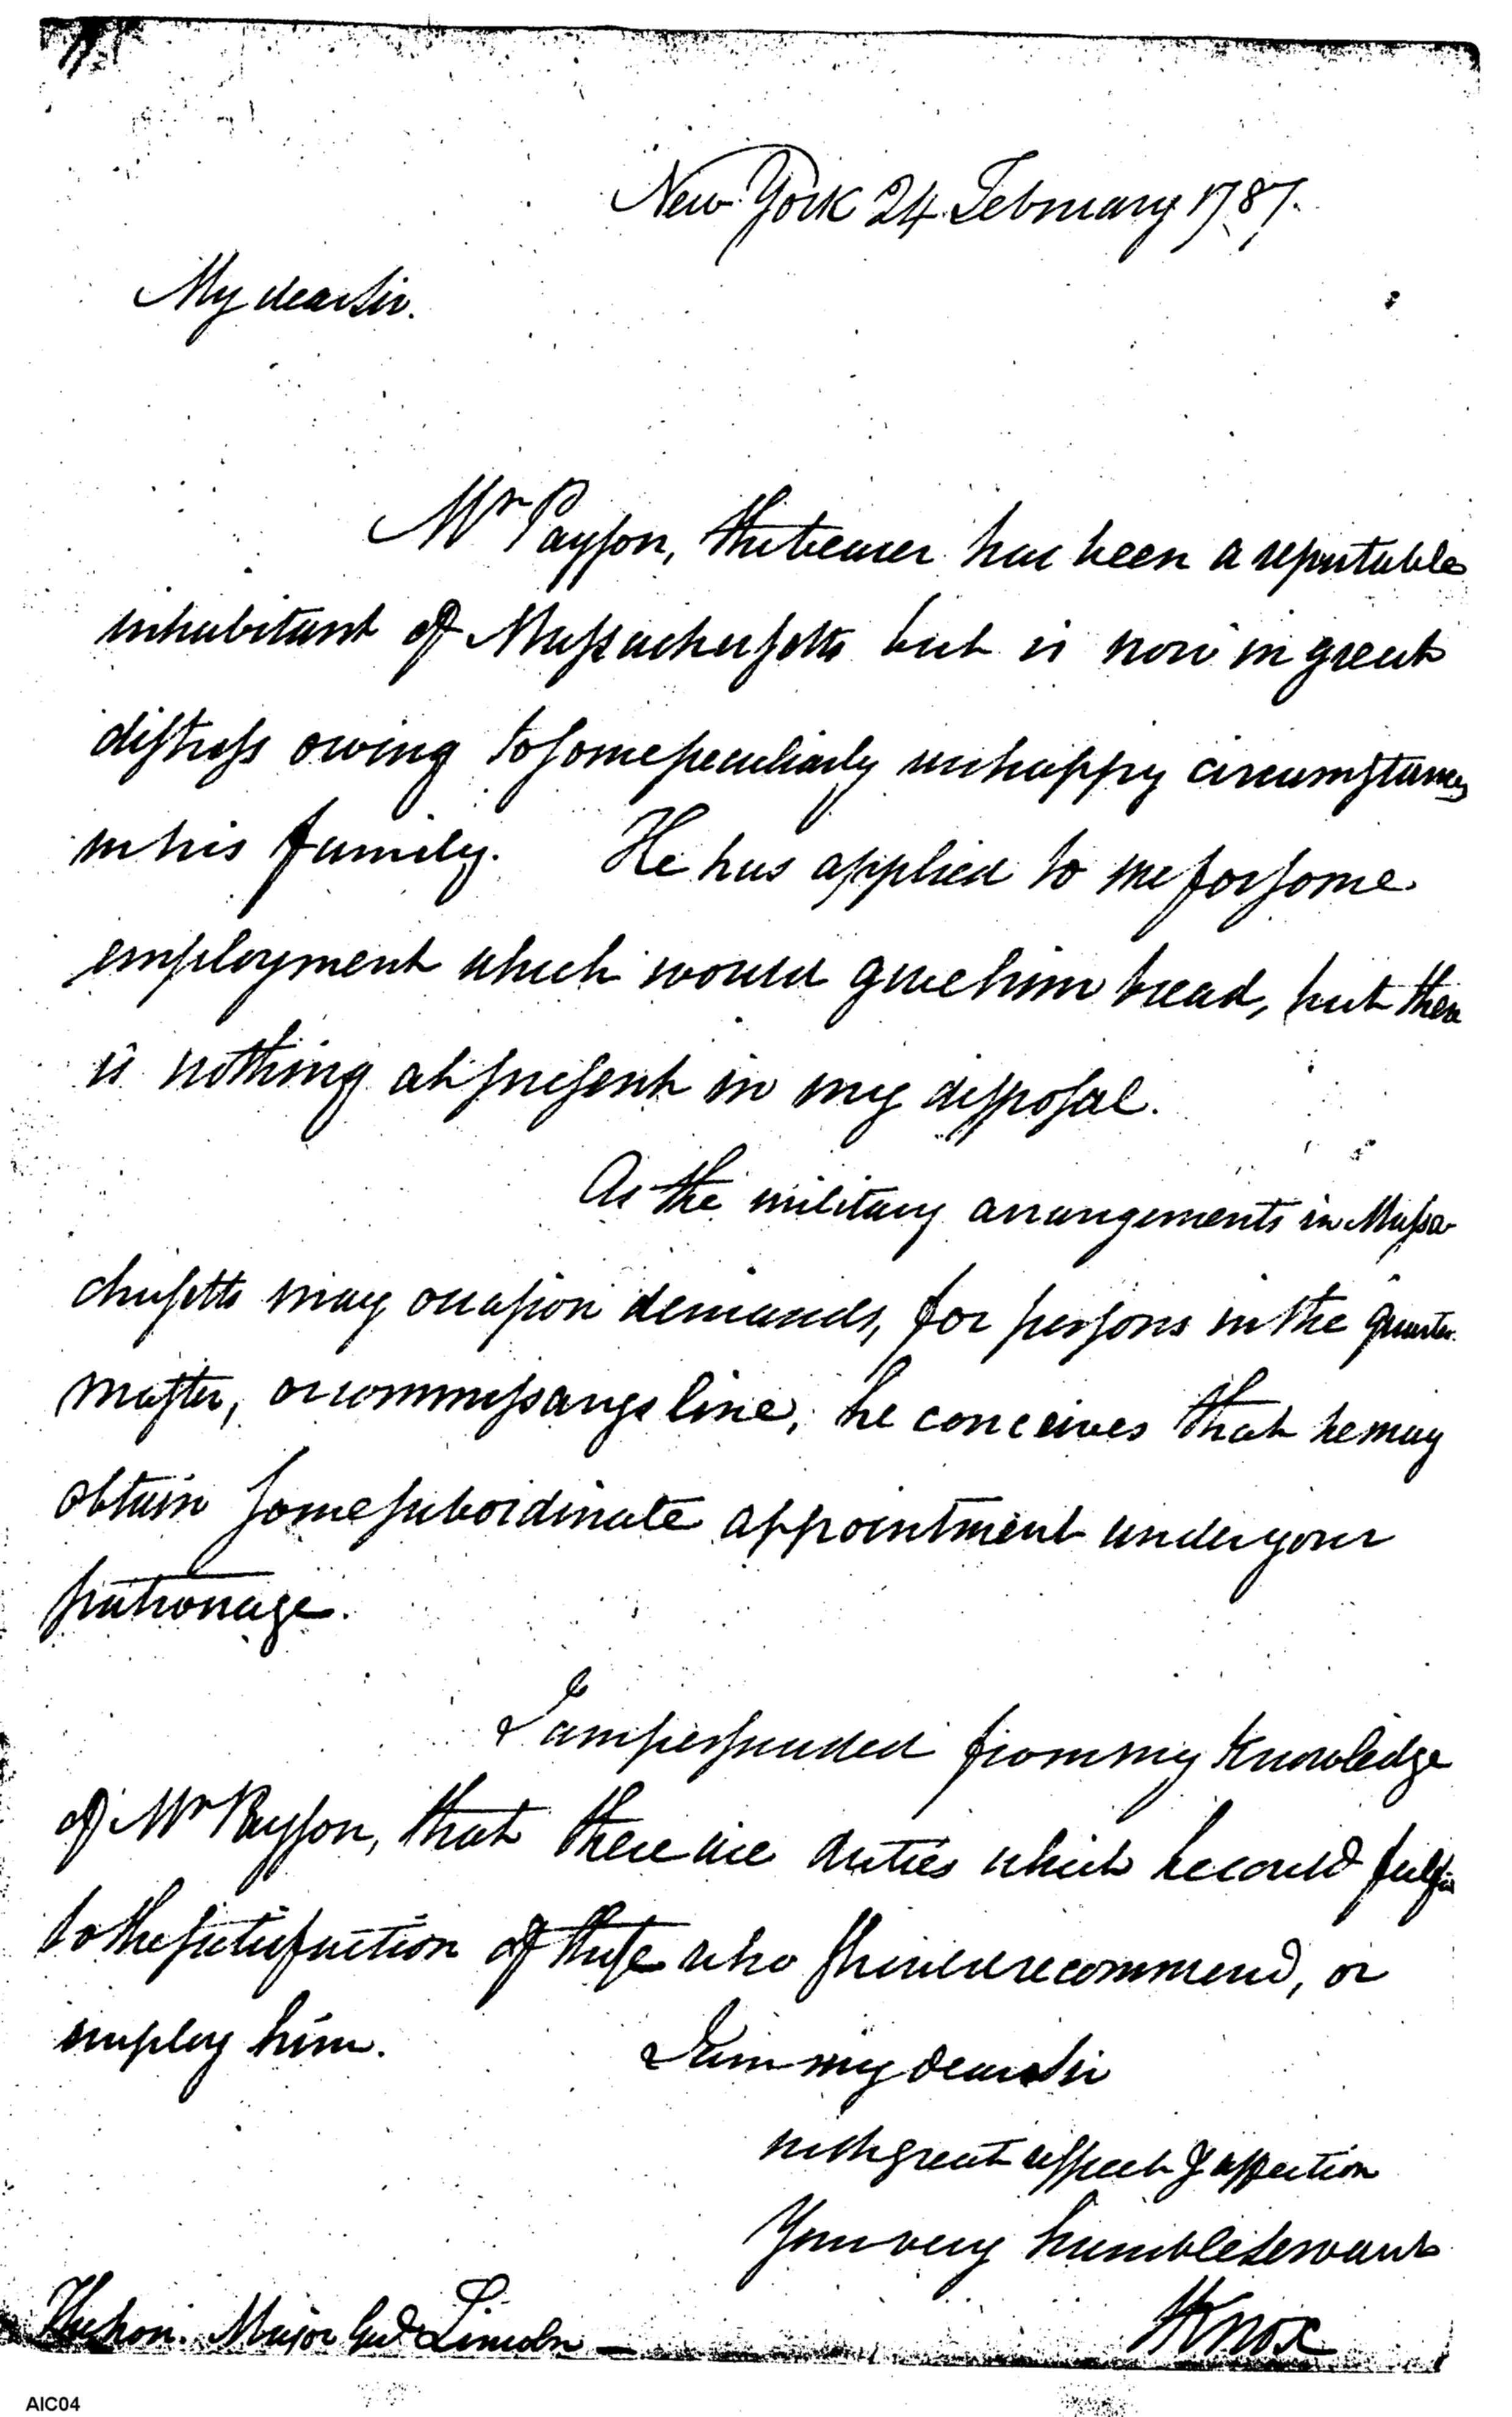 New York 24 February 1787.
My dear Sir.
Mr Payson, the bearer has been a reputable
inhabitant of Massachusetts but is now in great
distress owing to some peculiarly unhappy circumstances
in his family. He has applied to me for some
employment which would give him bread, but there
is nothing at present in my disposal.
As the military arrangements in Massa-
chusetts may occasion demands, for persons in the quarter
master, or commissarys line, he conceives that he may
obtain some subordinate appointment under your
patronage.
I am persuaded from my knowledge
of Mr Payson, that there are duties which he could fulfil
to the satisfaction of those who should recommend, or
employ him.
I am my dear Sir
with great respect & affection
Your very humble Servant
HKnox
The hon. Major Genl Lincoln
AIC04